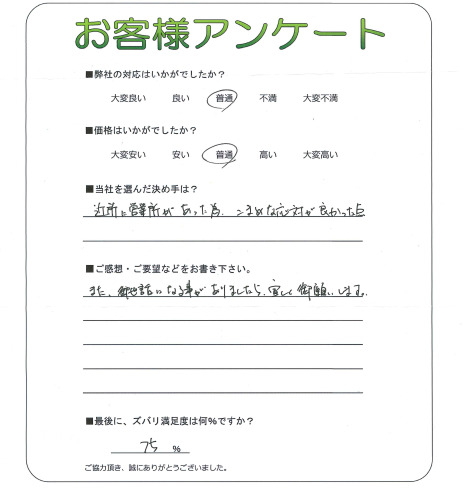 お客様アンケート
■弊社の対応はいかがでしたか？
大変良い 良い 普通 不満 大変不満
■価格はいかがでしたか？
大変安い 安い 普通 高い 大変高い
■当社を選んだ決め手は？
近所に営業所があった為、こまめな応対が良かった点
■ご感想・ご要望などをお書き下さい。
また、御世話になる事がありましたら、宜しく御願いします。
■最後に、ズバリ満足度は何%ですか？
75 %
ご協力頂き、誠にありがとうございました。